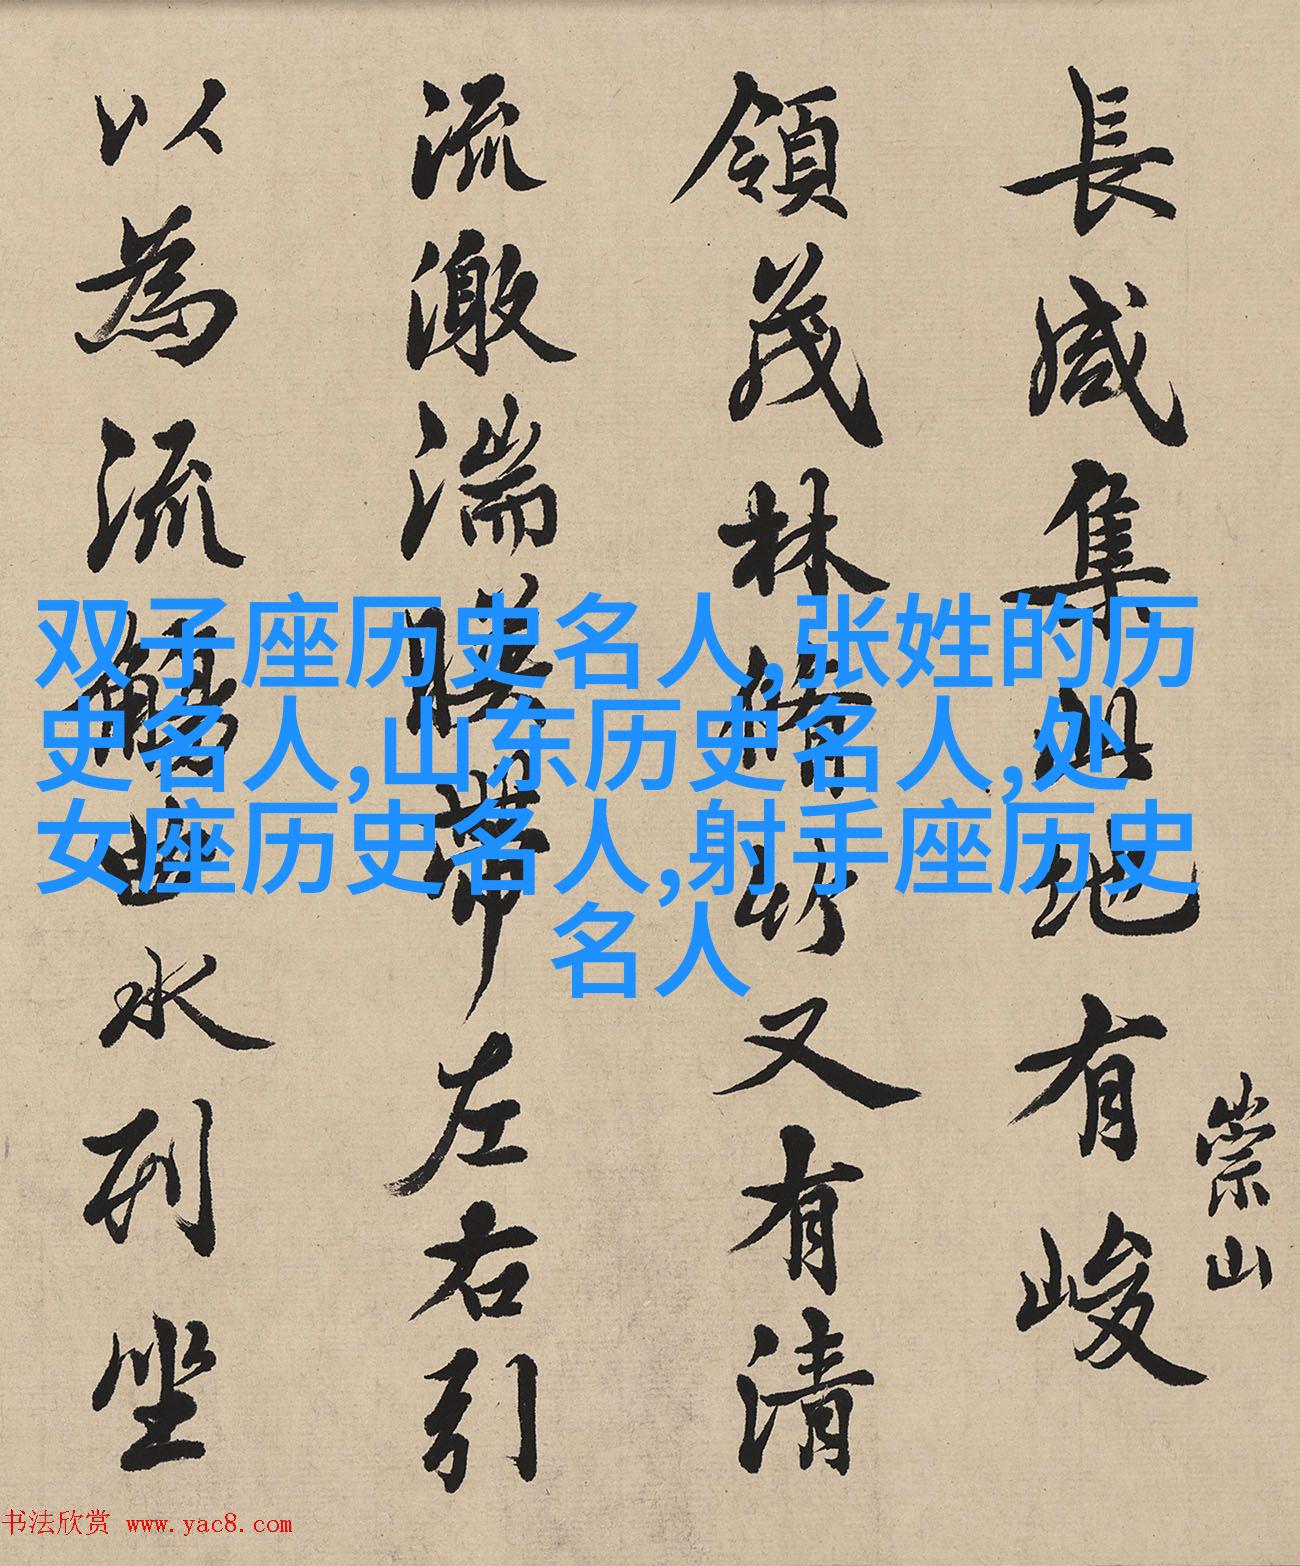 長咸集此地有峻
崇山
領茂林脩竹又有清
流激湍暎帶左右引
以為流觴曲水列坐
双子座历史名人,张姓的历
史名人,山东历史名人,处
女座历史名人,射手座历史
名人
书法欣赏 www.yac8.com